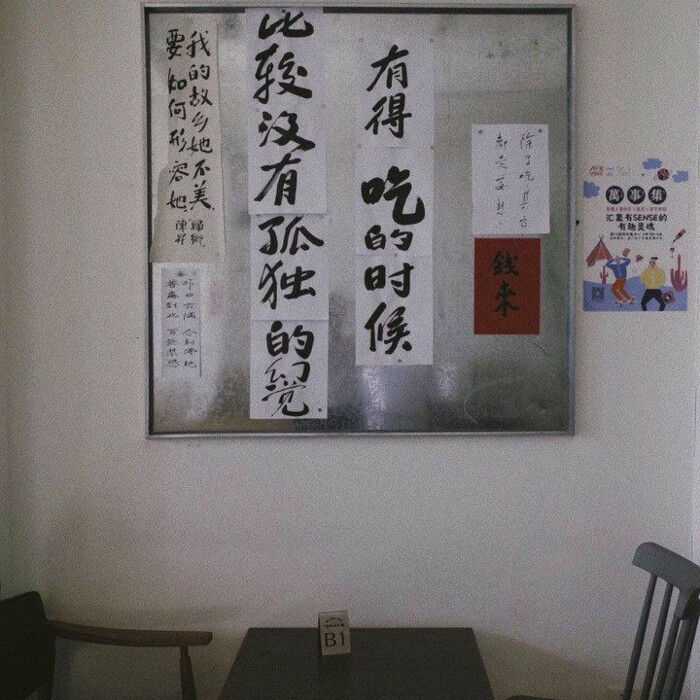 萬事集
汇集有SENSE的
有趣灵魂
除了吃其
都是
錢来
有得吃的时候
比较没有孤独的幻觉
我的故乡她不美
要如何形容她
歸鄉
陳昇
昨日
B1